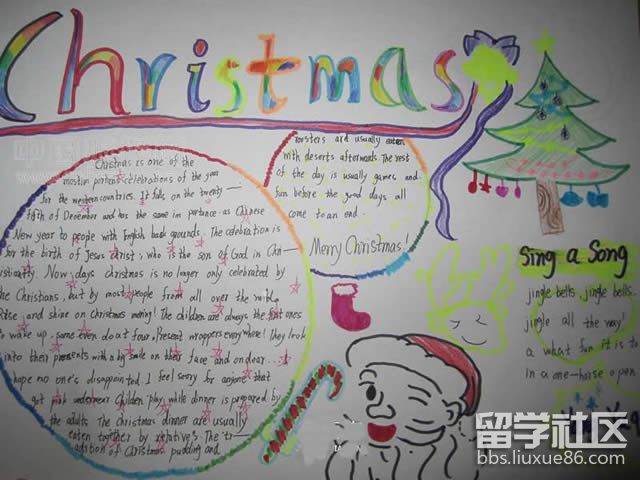 Christmas
Christmas is one of the
most important celebrations of the year
for the western countries. It falls on the twenty—
fifth of December and has the same importance as Chinese
New year to people with English back grounds. The celebration is
for the birth of Jesus christ, who is the son of God in Chr—
istianty. Now days christmas is no longer only celebrated by
the Christians, but by most people from all over the world.
Rise and shine on Christmas morning! The children are always the first ones
to wake up, some even do at four. Present wrappers everywhere! They look
into their presents with a big smile on their face and on dear...
hope no one's disappointed. I feel sorry for anyone that
got pink underwear. Childen play while dinner is prepared by
the adults. The Christmas dinner are usually
eaten together by relative's. The tr—
adition of Christmas pudding and
roosters are usually eaten
with deserts afterwards. The rest
of the day is usually games and
fun before the good days all
come to an end.
Merry Christmas!
Sing a Song
jingle bells, jingle bells.
jingle all the way!
a what fun it is to
in a one-horse open
留学社区
bbs.liuxue86.com